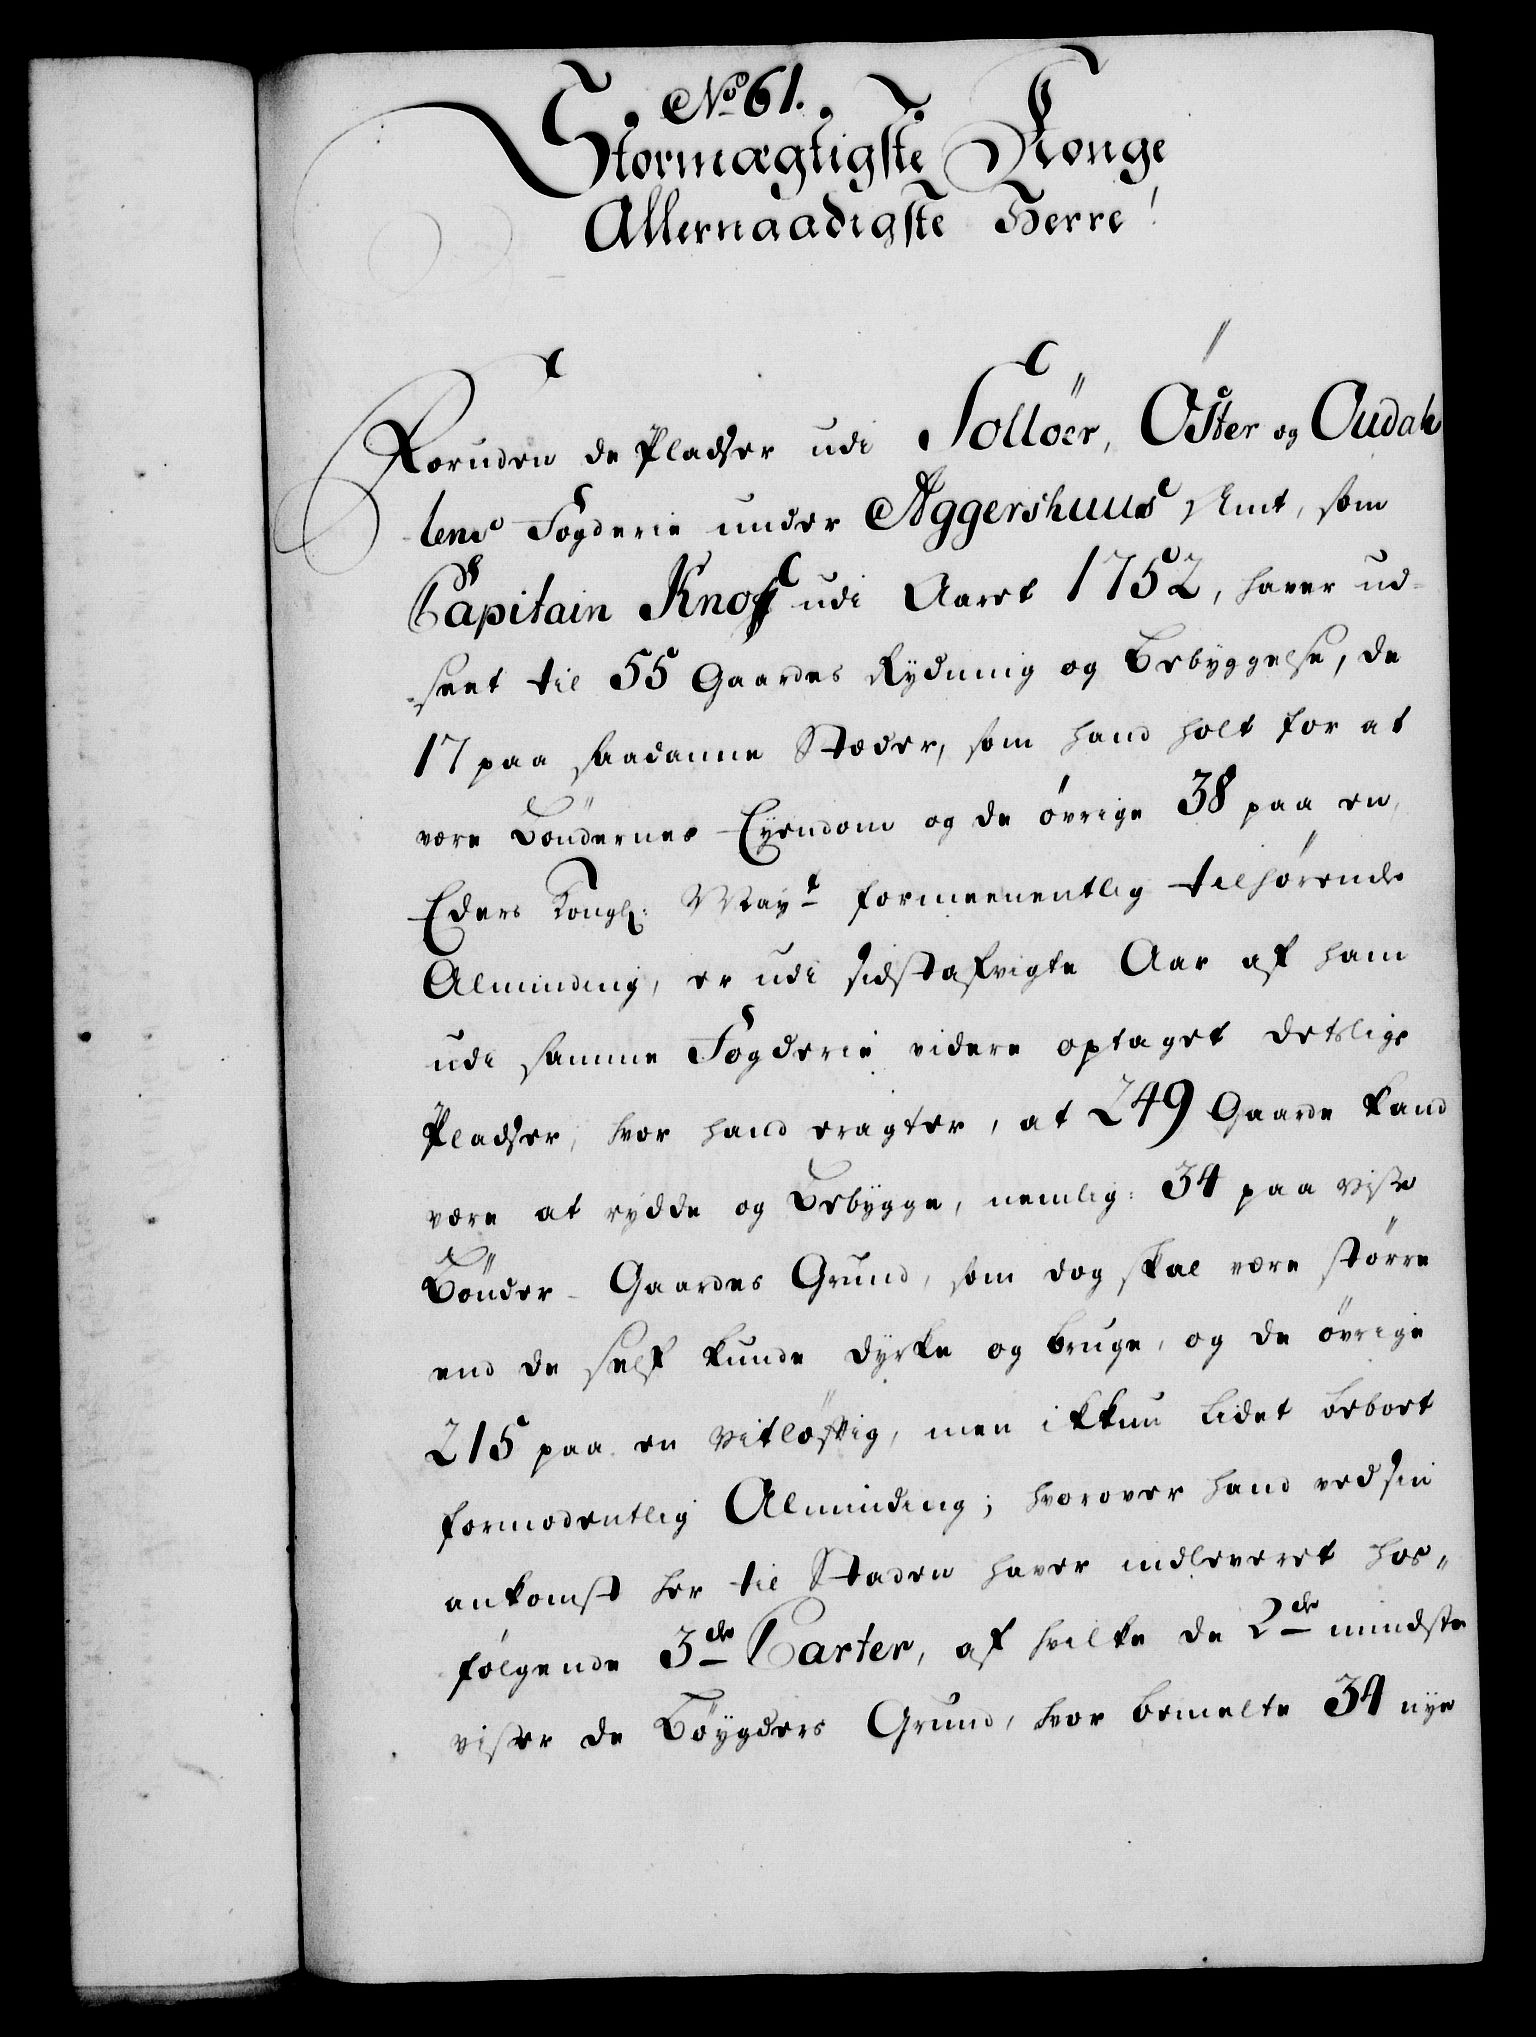 No 61.
Stormægtigste Konge
Allernaadigste Herre!
Foruden de Pladser udi Solloer, Öster og Oudah
lens Fogderie under Aggershuus Amt, som
Capitain Knoff udi Aaret 1752, haver ud-
seet til 55 Gaardes Rydning og Bebyggelse, de
17 paa saadanne Stæder, som hand holt for at
være Böndernes Eyendom og de övrige 38 paa en,
Eders Kongl: Mayt formeenentlig tilhörende
Alminding, er udi sidstafvigte Aar af ham
udi samme Fogderie videre optaget detslige
Pladser, hvor hand eragter, at 249 Gaarde kand
være at rydde og Bebygge, nemlig: 34 paa visse
Bönder-Gaardes Grund, som dog skal være större
end de self kunde dyrke og bruge, og de övrige
215 paa en vitlöftig, men ikkun lidet beboet
formodentlig Alminding; hvorover hand ved sin
ankomst her til Staden haver indleveret hos„
fölgende 3de Carter, af hvilke de 2de mindste
viser de Böygders Grund, hvor bemelte 34 nye